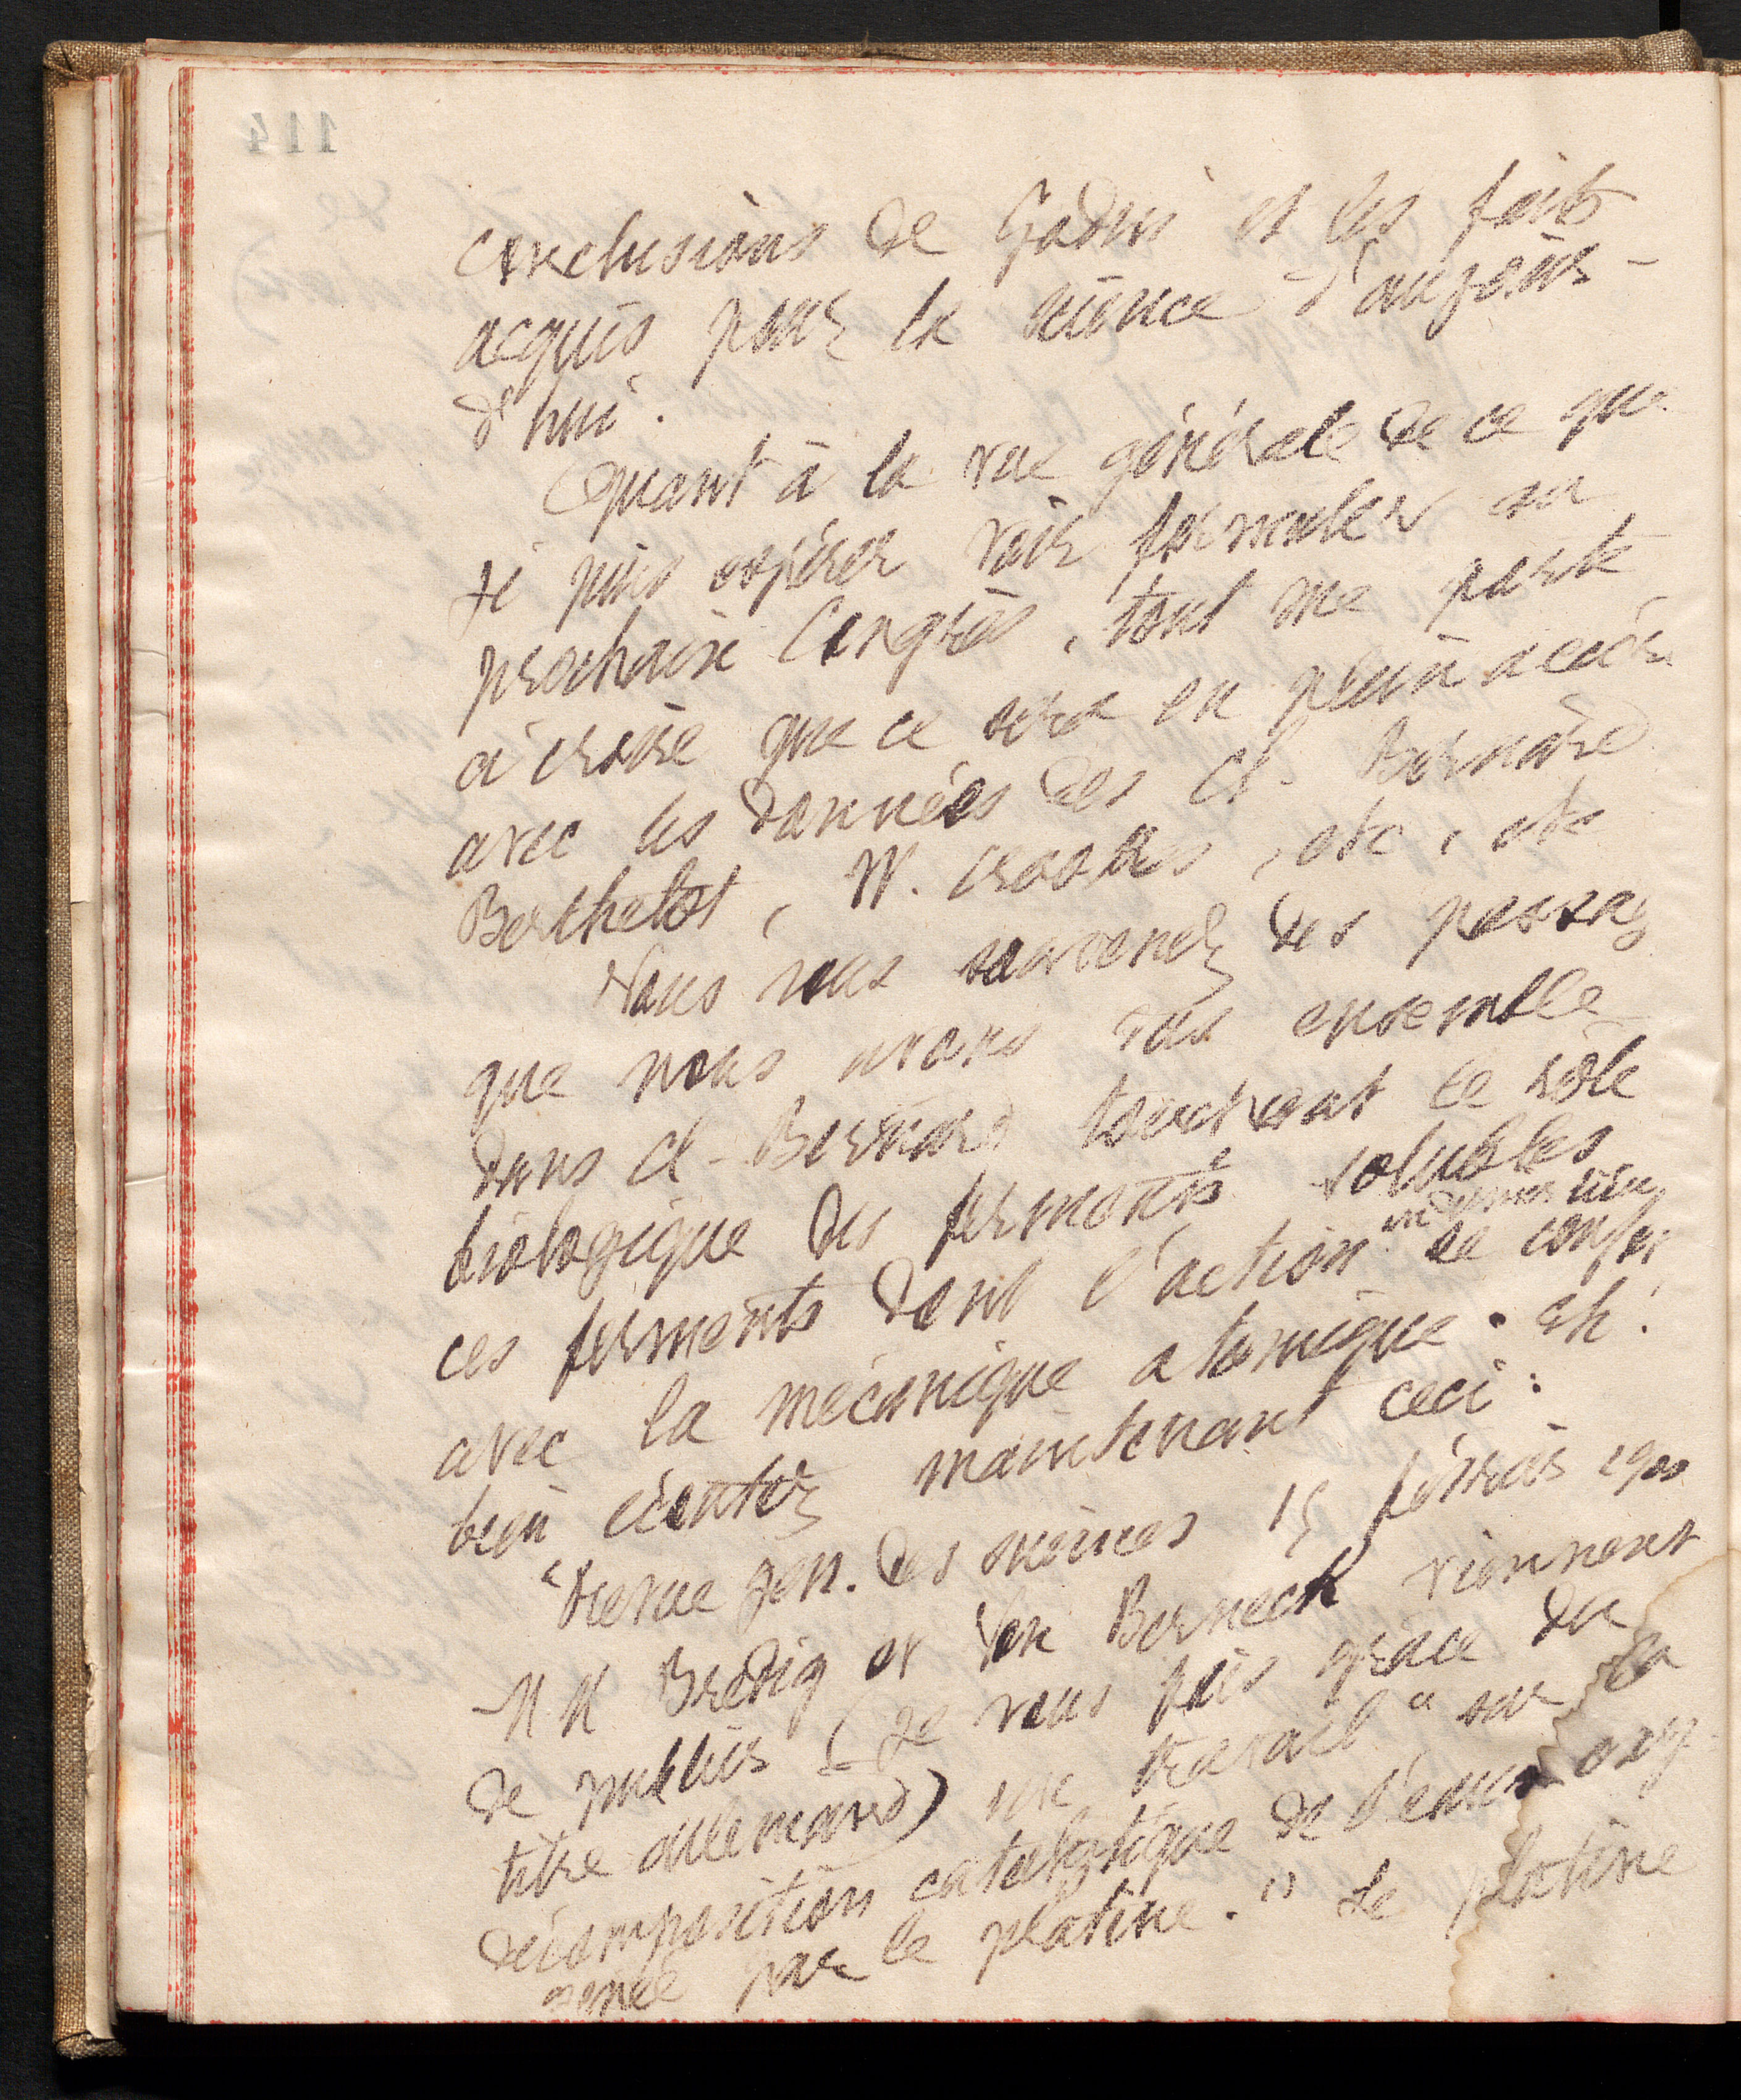 114
conclusions de Godin et les faits
acquis pour la science d'aujour-
d'hui.
Quant à la vue générale de ce que
je puis espérer voir formuler au
prochain Congrès, tout me porte
à croire que ce sera en plein accord
avec les données des Cl. Bernard
Berthelot, W. Crookes, etc, etc
Vous vous souvenez des passag
que nous avons vus ensemble
dans Cl. Bernard touchant le rôle
biologique des ferments solubles
ces ferments dont l'action en dernier lieu se confond
avec la mécanique atomique. Eh!
bien écoutez maintenant ceci:
"Revue gén. des sciences 15 février 1900
M M Bredig et Von Berneck viennent
de publier (je vous fais grâce du
titre allemand) un travail "sur la
décomposition catalytique de l'eau oxy-
génée par le platine." Le platine